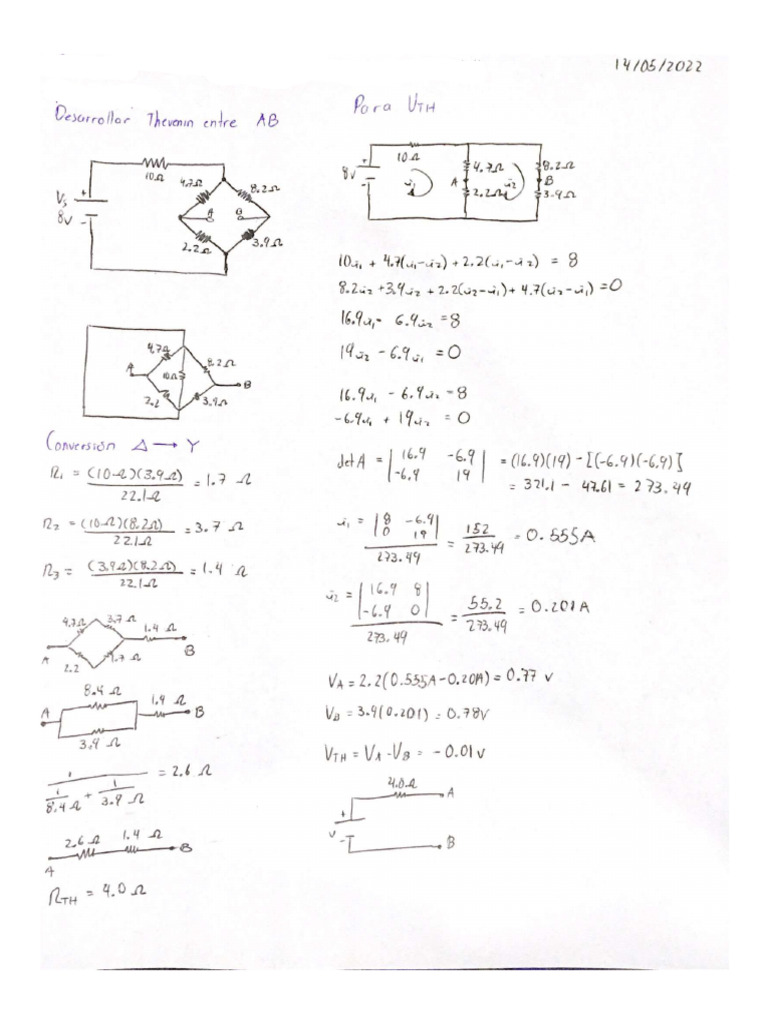 14/05/2022
Desarrollar Thevenin entre AB
10Ω
4.7Ω
8.2Ω
Vs
8v
+
-
A
B
2.2Ω
3.9Ω
4.7Ω
8.2Ω
A
10Ω
B
2.2
3.9Ω
Conversión Δ → Y
R1 = (10Ω)(3.9Ω) / 22.1Ω = 1.7 Ω
R2 = (10Ω)(8.2Ω) / 22.1Ω = 3.7 Ω
R3 = (3.9Ω)(8.2Ω) / 22.1Ω = 1.4 Ω
4.7Ω 3.7 Ω
1.4 Ω
A
B
2.2
1.7 Ω
8.4 Ω
1.4 Ω
A
B
3.9 Ω
1 / (1/8.4Ω + 1/3.9Ω) = 2.6 Ω
2.6 Ω 1.4 Ω
A
B
RTH = 4.0 Ω
Para VTH
10Ω
8v
+
-
i1
4.7Ω
A
2.2Ω
i2
8.2Ω
B
3.9Ω
10i1 + 4.7(i1-i2) + 2.2(i1-i2) = 8
8.2i2 + 3.9i2 + 2.2(i2-i1) + 4.7(i2-i1) = 0
16.9i1 - 6.9i2 = 8
19i2 - 6.9i1 = 0
16.9i1 - 6.9i2 = 8
-6.9i1 + 19i2 = 0
det A = |16.9 -6.9|
|-6.9 19| = (16.9)(19) - [(-6.9)(-6.9)]
= 321.1 - 47.61 = 273.49
i1 = |8 -6.9|
|0 19| / 273.49 = 152 / 273.49 = 0.555A
i2 = |16.9 8|
|-6.9 0| / 273.49 = 55.2 / 273.49 = 0.201A
VA = 2.2(0.555A - 0.20A) = 0.77 v
VB = 3.9(0.201) = 0.78v
VTH = VA - VB = -0.01v
4.0Ω
A
+
v
-
B